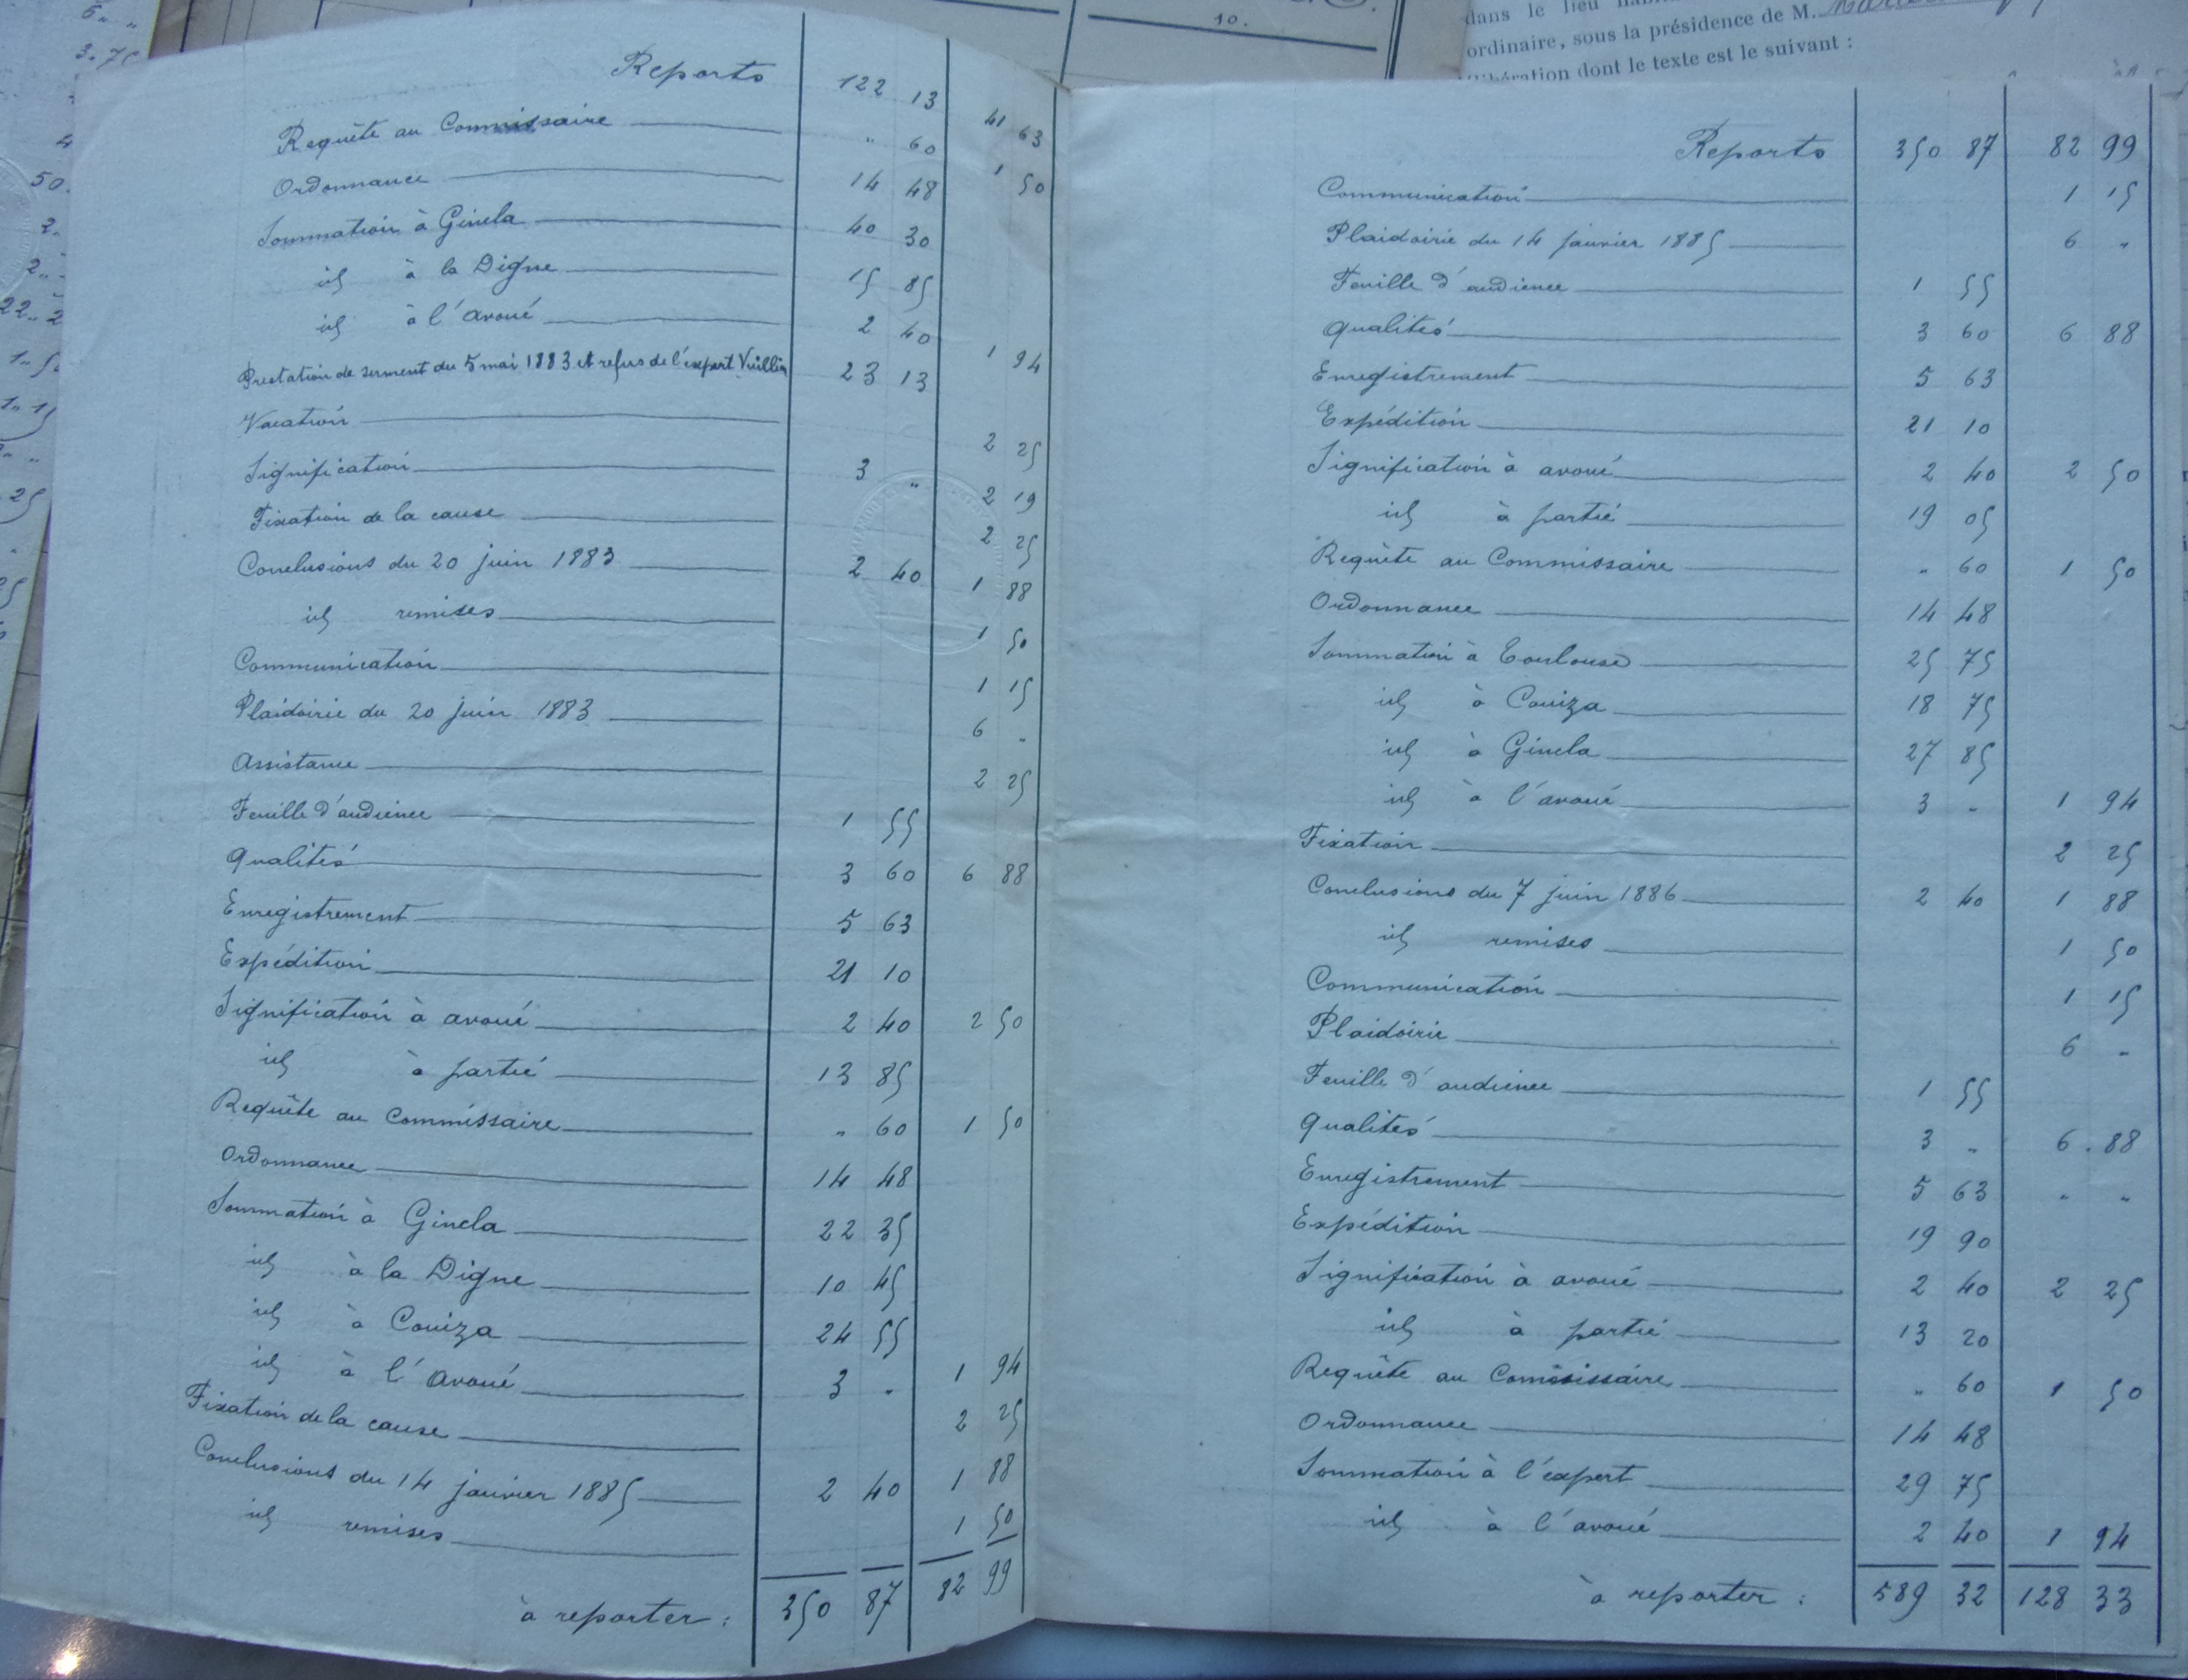 5 " "
3. 75
4
50.
2.
2..
22.. 2
1.. 5
1.. 15
25
10.
dans le lieu
ordinaire, sous la présidence de M.
délibération dont le texte est le suivant :
Reports 122 13 41 63
Requête au Commissaire " 60 1 50
Ordonnance 14 48
Sommation à Ginela 40 30
id à la Digne 15 85
id à l'avoué 2 40 1 94
Prestation de serment du 5 mai 1883 et refus de l'expert Vuillier 23 13
Vacation 2 25
Signification 3 " 2 19
Fixation de la cause 2 25
Conclusions du 20 juin 1883 2 40 1 88
id remises 1 50
Communication 1 15
Plaidoirie du 20 juin 1883 6 "
Assistance 2 25
Feuille d'audience 1 55
Qualités 3 60 6 88
Enregistrement 5 63
Expédition 21 10
Signification à avoué 2 40 2 50
id à partie 13 85
Requête au Commissaire " 60 1 50
Ordonnance 14 48
Sommation à Ginela 22 35
id à la Digne 10 45
id à Couiza 24 55
id à l'avoué 3 " 1 94
Fixation de la cause 2 25
Conclusions du 14 janvier 1885 2 40 1 88
id remises 1 50
à reporter : 350 87 82 99
Reports 350 87 82 99
Communication 1 15
Plaidoirie du 14 janvier 1885 6 "
Feuille d'audience 1 55
Qualités 3 60 6 88
Enregistrement 5 63
Expédition 21 10
Signification à avoué 2 40 2 50
id à partie 19 05
Requête au Commissaire " 60 1 50
Ordonnance 14 48
Sommation à Toulouse 25 75
id à Couiza 18 75
id à Ginela 27 85
id à l'avoué 3 " 1 94
Fixation 2 25
Conclusions du 7 juin 1886 2 40 1 88
id remises 1 50
Communication 1 15
Plaidoirie 6 "
Feuille d'audience 1 55
Qualités 3 " 6.88
Enregistrement 5 63 " "
Expédition 19 90
Signification à avoué 2 40 2 25
id à partie 13 20
Requête au Commissaire " 60 1 50
Ordonnance 14 48
Sommation à l'expert 29 75
id à l'avoué 2 40 1 94
à reporter : 589 32 128 33